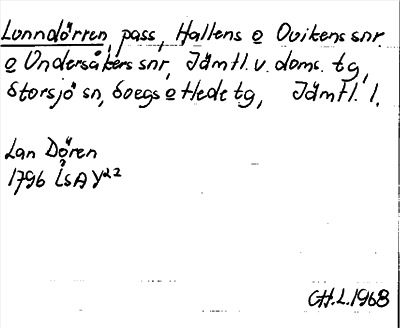 Lunndörren, pass, Hallens o Ovikens snr
o Undersåkers snr, Jämtl. v. doms. tg,
Storsjö sn, Svegs o Hede tg, Jämtl. l.
Lan Dören
1796 LSA Y²²
CH.L.1968